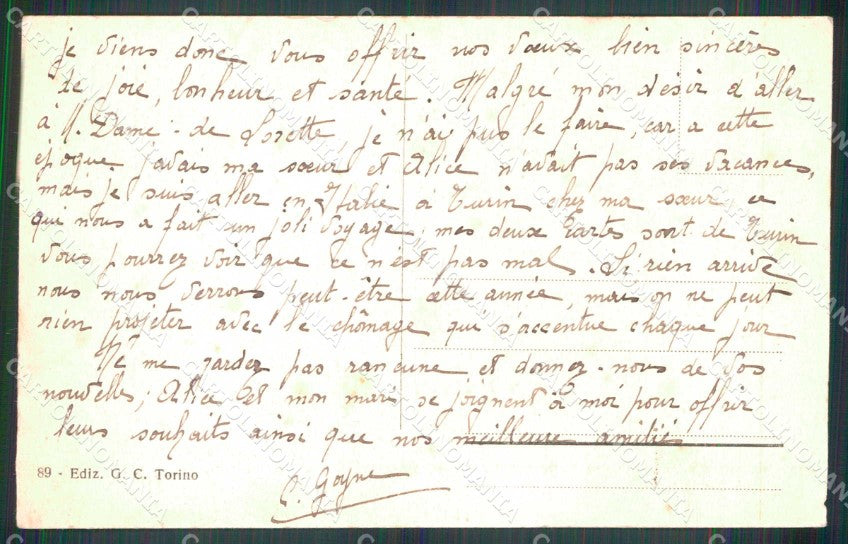 je viens donc vous offrir nos vœux bien sincères
de joie, bonheur et santé. Malgré mon désir d'aller
à N. Dame - de Lorette, je n'ai pus le faire, car a cette
époque j'avais ma sœur et Alice n'avait pas ses vacances,
mais je suis aller en Italie à Turin chez ma sœur, ce
qui nous a fait un joli voyage, mes deux cartes sont de Turin
vous pourrez voir que ce n'est pas mal. Si rien arrive
nous nous verrons peut-être cette année, mais on ne peut
rien projeter avec le chômage que s'accentue chaque jour
Ne me gardez pas rancune et donnez-nous de vos
nouvelles; Alice et mon mari se joignent à moi pour offrir
leurs souhaits ainsi que nos meilleure amitiés
89 - Ediz. G. C. Torino
CARTOLINOMANIA